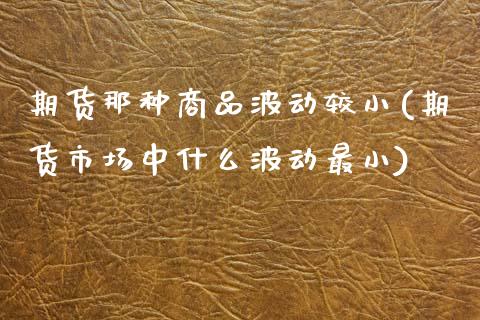 期货那种商品波动较小(期
货市场中什么波动最小)